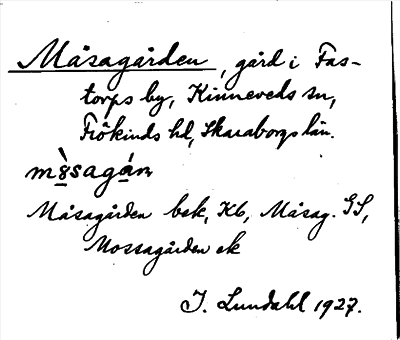 Måsagården, gård i Fas-
torps by, Kinneveds sn,
Frökinds hd, Skaraborgs län.
Måsagården bsk, Kb, Måsag. GS,
Mossagården ek
I. Lundahl 1927.